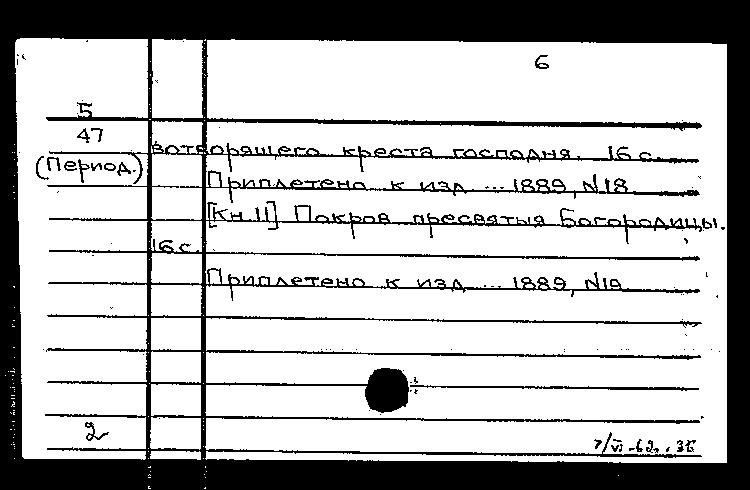 6
5
47
(Период.)
вотворящего креста господня. 16 с.
Приплетено к изд ... 1889, №18.
[Кн. 11] Покров пресвятыя Богородицы.
16 с.
Приплетено к изд ... 1889, №19
2
7/VI-62.